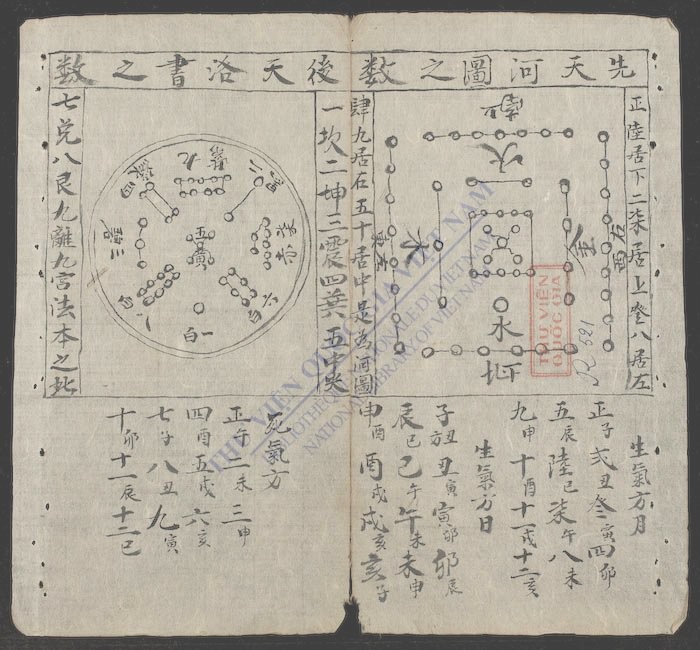 先天河圖之数
正陸居下二柒居上叄八居左
南
火
金
右西
木
水
北
肆九居右五十居中是為河圖
後天洛書之数
一坎二坤三震四巽五中央
九紫
四綠
三碧
柒赤
六白
一白
七兌八艮九離九宮法本之此
生氣方月
正子弍丑叄寅四卯
五辰陸巳柒午八未
九申十酉十一戌十二亥
生氣方日
子丑丑寅寅卯卯辰
辰巳巳午午未未申
申酉酉戌戌亥亥子
死氣方
正午二未三申
四酉五戌六亥
七子八丑九寅
十卯十一辰十二巳
THƯ VIỆN
QUỐC GIA
THƯ VIỆN QUỐC GIA VIỆT NAM
BIBLIOTHÈQUE NATIONALE DU VIETNAM
NATIONAL LIBRARY OF VIETNAM